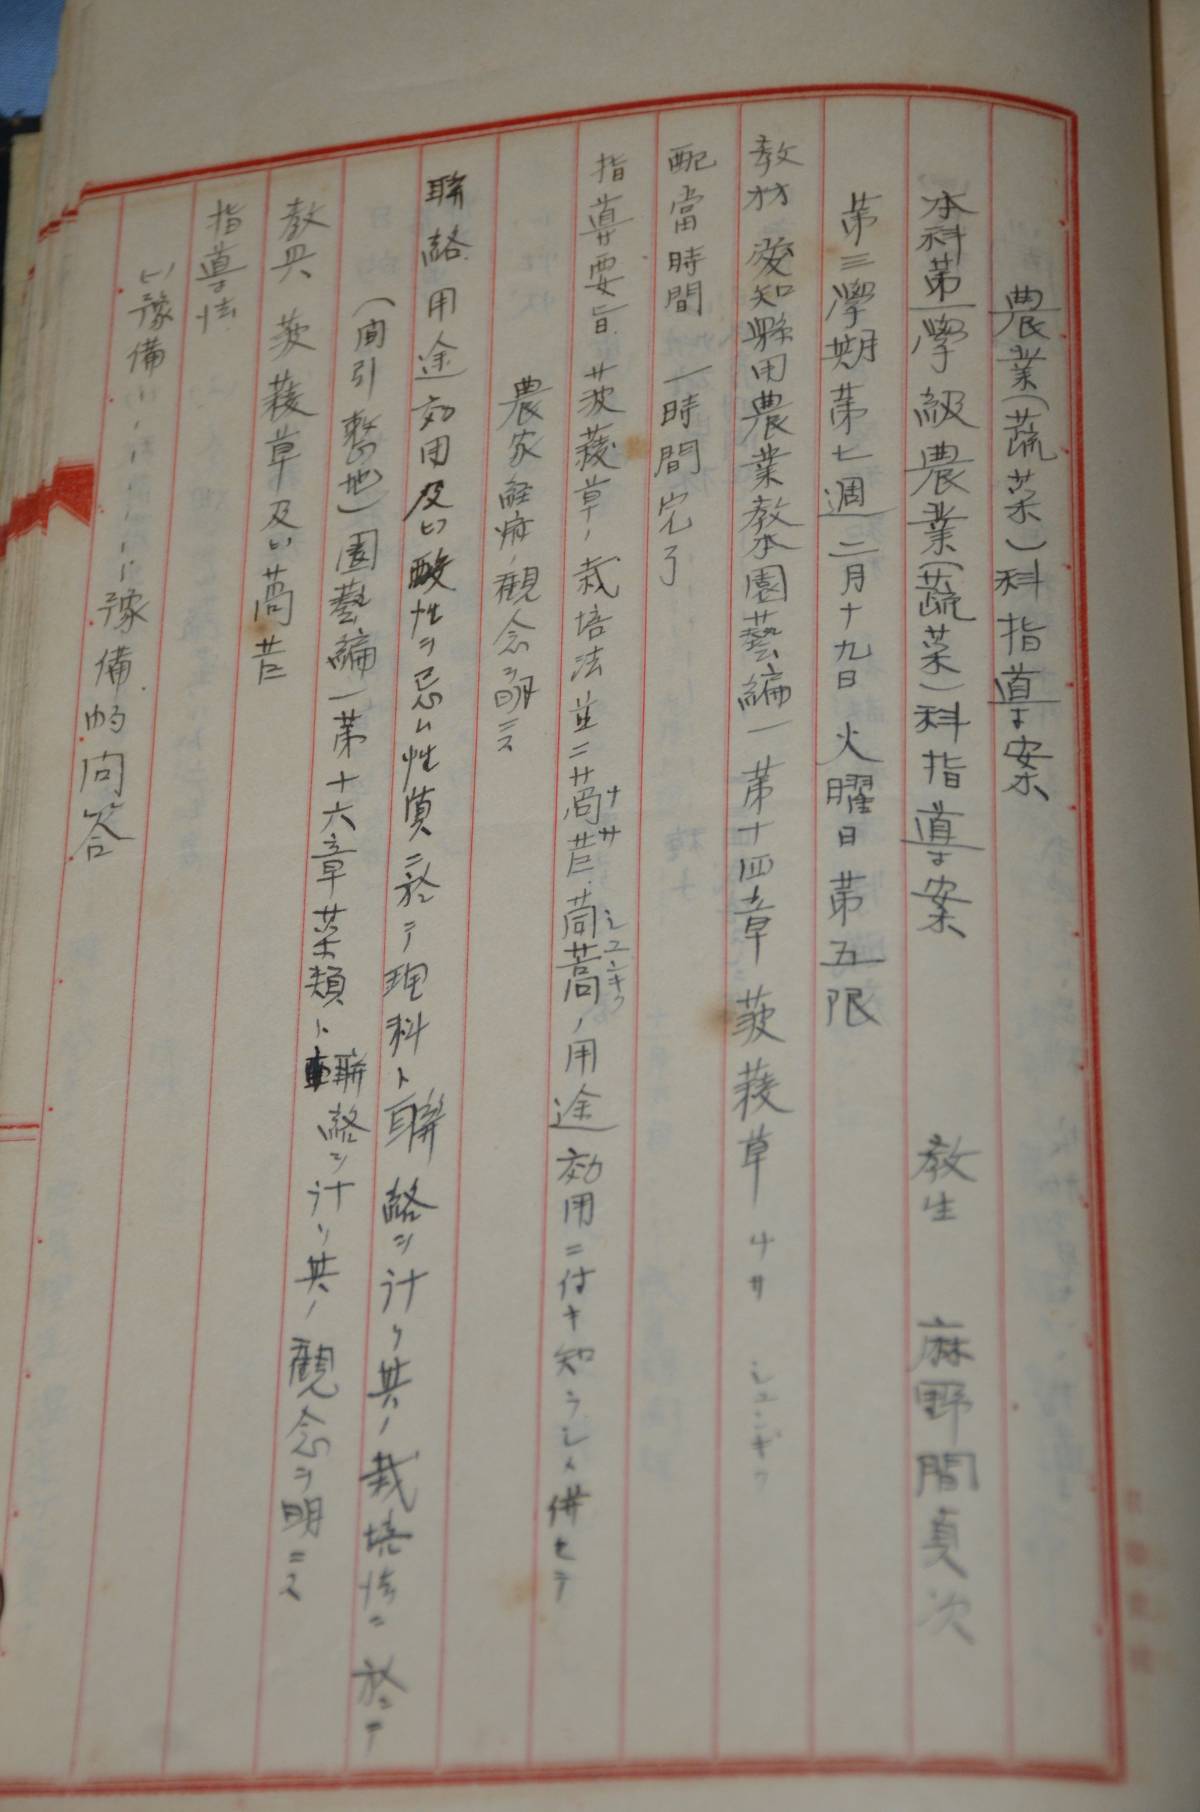 農業(蔬菜)科指導案
本科第一學級農業(蔬菜)科指導案 教生 麻野間真次
第三學期第七週二月十九日火曜日第五限
教材 愛知縣用農業教本園藝編一第十四章 菠薐草 チサ シュンギク
配當時間 一時間完了
指導要旨 菠薐草ノ栽培法並ニ萵苣茼蒿ノ用途効用ニ付キ知ラシメ併セテ
チサ シユンキク
農家経済ノ観念ヲ明ニス
聯絡 用途効用及ビ酸性ヲ忌ム性質ニ於テ理科ト聯絡ヲ計リ其ノ栽培法ニ於テ
(間引整地)園藝編一第十六章菜類ト聯絡ヲ計リ其ノ観念ヲ明ニス
教具 菠薐草及ビ萵苣
指導法
(一)豫備
豫備的问答